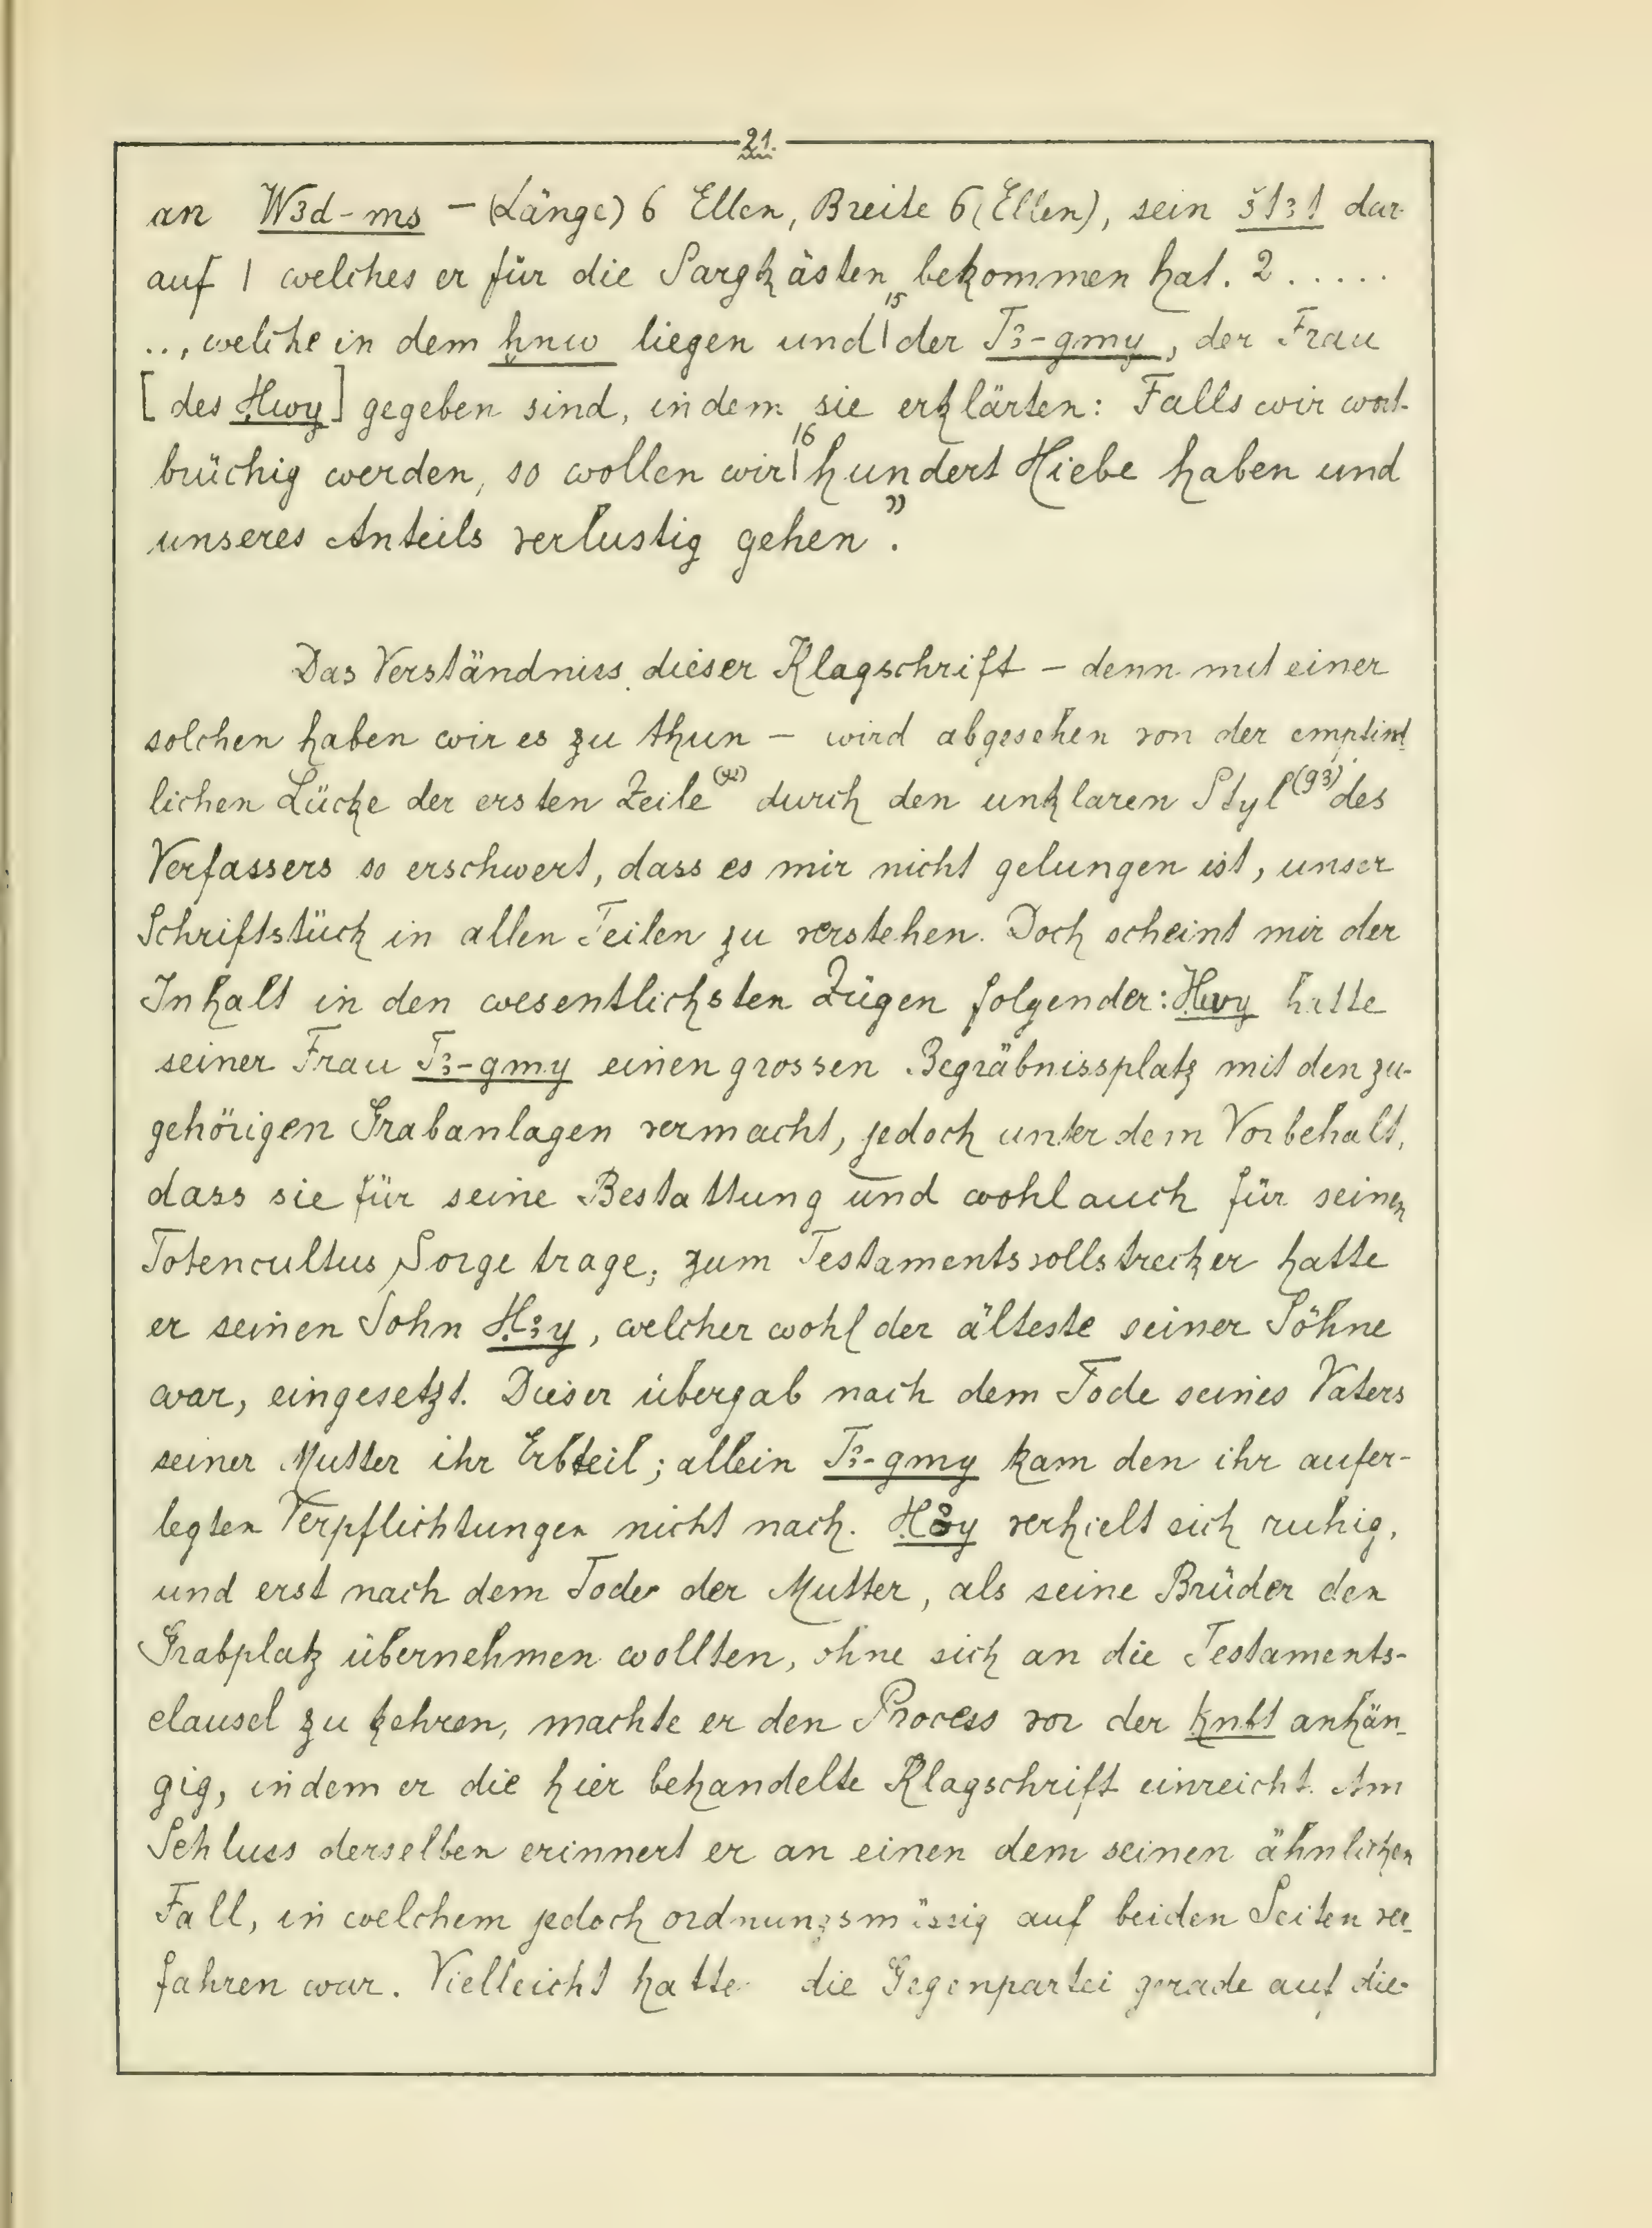 21.
an W3d-ms — (Länge) 6 Ellen, Breite 6 (Ellen), sein št3t dar-
auf 1 welches er für die Sargkästen bekommen hat. 2 .....
.., welche in dem ḫnw liegen und |15 der T3-gmy, der Frau
[des Ḥwy] gegeben sind, indem sie erklärten: Falls wir wort-
brüchig werden, so wollen wir |16 hundert Hiebe haben und
unseres Anteils verlustig gehen".
Das Verständniss dieser Klagschrift — denn mit einer
solchen haben wir es zu thun — wird abgesehen von der empfind-
lichen Lücke der ersten Zeile (92) durch den unklaren Styl (93) des
Verfassers so erschwert, dass es mir nicht gelungen ist, unser
Schriftstück in allen Teilen zu verstehen. Doch scheint mir der
Inhalt in den wesentlichsten Zügen folgender: Ḥwy hatte
seiner Frau T3-gmy einen grossen Begräbnissplatz mit den zu-
gehörigen Grabanlagen vermacht, jedoch unter dem Vorbehalt,
dass sie für seine Bestattung und wohl auch für seinen
Totencultus Sorge trage; zum Testamentsvollstrecker hatte
er seinen Sohn Ḥ3y, welcher wohl der älteste seiner Söhne
war, eingesetzt. Dieser übergab nach dem Tode seines Vaters
seiner Mutter ihr Erbteil; allein T3-gmy kam den ihr aufer-
legten Verpflichtungen nicht nach. Ḥ3y verhielt sich ruhig,
und erst nach dem Tode der Mutter, als seine Brüder den
Grabplatz übernehmen wollten, ohne sich an die Testaments-
clausel zu kehren, machte er den Process vor der ḳnbt anhän-
gig, indem er die hier behandelte Klagschrift einreicht. Am
Schluss derselben erinnert er an einen dem seinen ähnlichen
Fall, in welchem jedoch ordnungsmässig auf beiden Seiten ver-
fahren war. Vielleicht hatte die Gegenpartei gerade auf die-